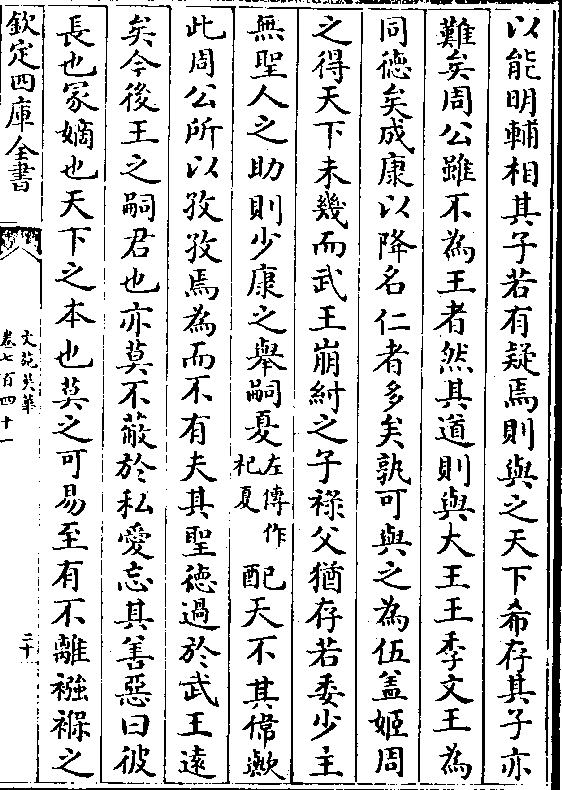 以能明輔相其子若有疑焉則與之天下希存其子亦
難矣周公雖不為王者然其道則與大王王季文王為
同徳矣成康以降名仁者多矣孰可與之為伍蓋姬周
之得天下未幾而武王崩紂之子祿父猶存若委少主
無聖人之助則少康之舉嗣夏左傳作杞夏配天不其偉歟
此周公所以孜孜焉為而不有夫其聖徳過於武王逺
矣今後王之嗣君也亦莫不蔽於私愛忘其善惡曰彼
長也冢嫡也天下之本也莫之可易至有不離襁褓之
欽定四庫全書
文苑英華
卷七百四十一
二十